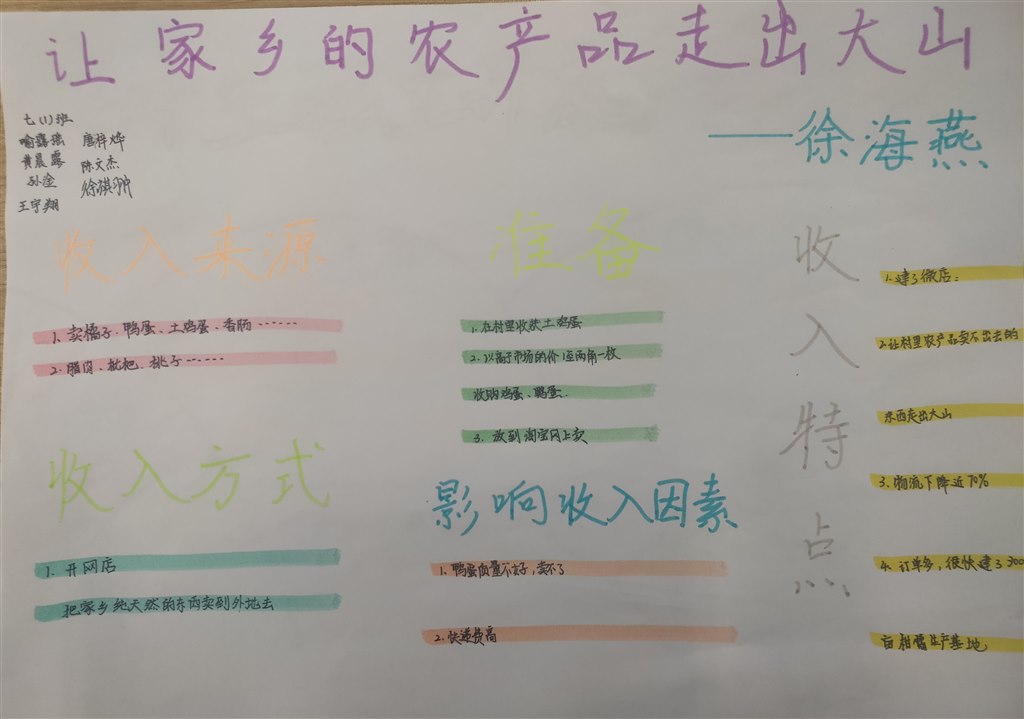 让家乡的农产品走出大山
——徐海燕
七(1)班
喻露瑶 唐梓烨
黄晨露 陈文杰
孙淦 徐祺翀
王宇翔
收入来源
1. 卖橘子、鸭蛋、土鸡蛋、香肠……
2. 腊肉、枇杷、桃子……
收入方式
1. 开网店
把家乡纯天然的东西卖到外地去
准备
1. 在村里收获土鸡蛋
2. 以高于市场的价1至两角一枚
收购鸡蛋、鸭蛋.
3. 放到淘宝网上卖
影响收入因素
1. 鸭蛋质量不好,卖不了
2. 快递费高
收入特点
1. 建了微店;
2. 让村里农产品卖不出去的
东西走出大山
3. 物流下降近70%
4. 订单多,很快建了300
亩柑橘生产基地